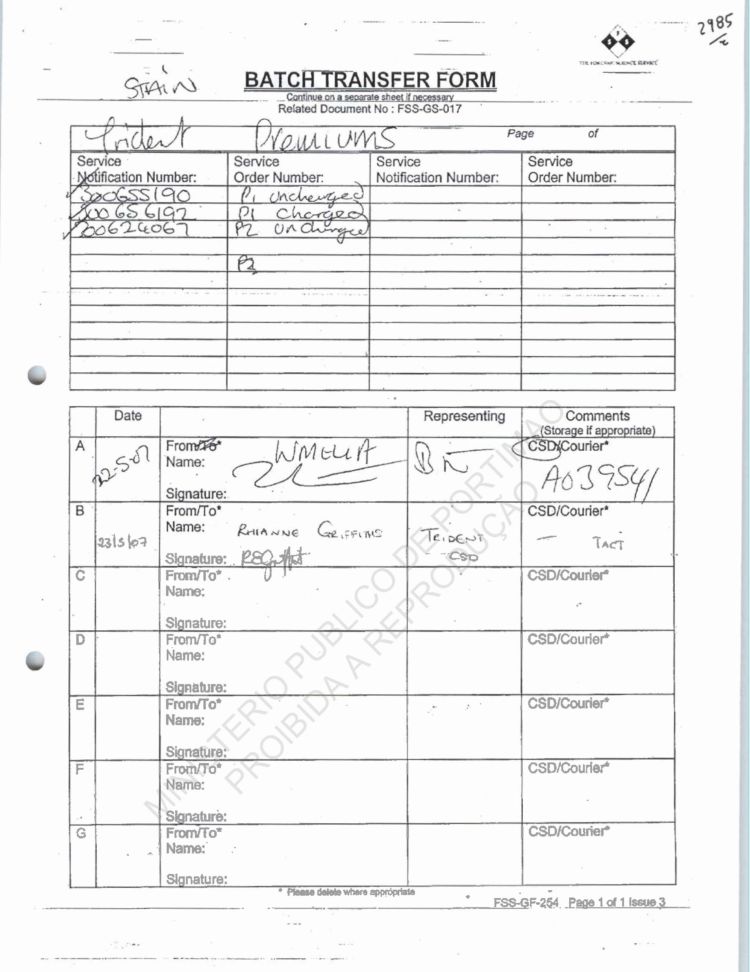 2985
THE FORENSIC SCIENCE SERVICE
STAIN
BATCH TRANSFER FORM
Continue on a separate sheet if necessary
Related Document No : FSS-GS-017
Trident Premiums Page of
Service Notification Number: Service Order Number: Service Notification Number: Service Order Number:
300655190 P1 unchanged
200656192 P1 Charged
200624067 P2 Uncharged
P2
Date Representing Comments (Storage if appropriate)
A 22-5-07 From/To* CSD/Courier*
Name: A039541
Signature:
B From/To* CSD/Courier*
23/5/07 Name: RHIANNE GRIFFITHS TRIDENT CSD – TACT
Signature:
C From/To* CSD/Courier*
Name:
Signature:
D From/To* CSD/Courier*
Name:
Signature:
E From/To* CSD/Courier*
Name:
Signature:
F From/To* CSD/Courier*
Name:
Signature:
G From/To* CSD/Courier*
Name:
Signature:
* Please delete where appropriate
FSS-GF-254 Page 1 of 1 Issue 3
MINISTERIO PUBLICO DE PORTIMAO
PROIBIDA A REPRODUÇÃO